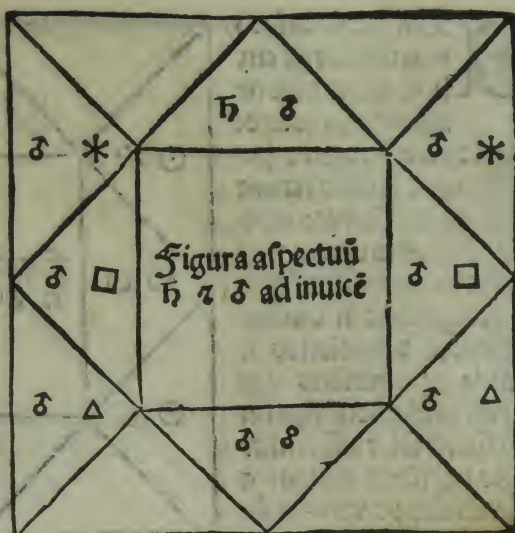 ♄ ♂
♂ ⚹ ♂ ⚹
Figura aſpectuū
♄ ⁊ ♂ ad inuicē
♂ □ ♂ □
♂ △ ♂ △
♂ ☍